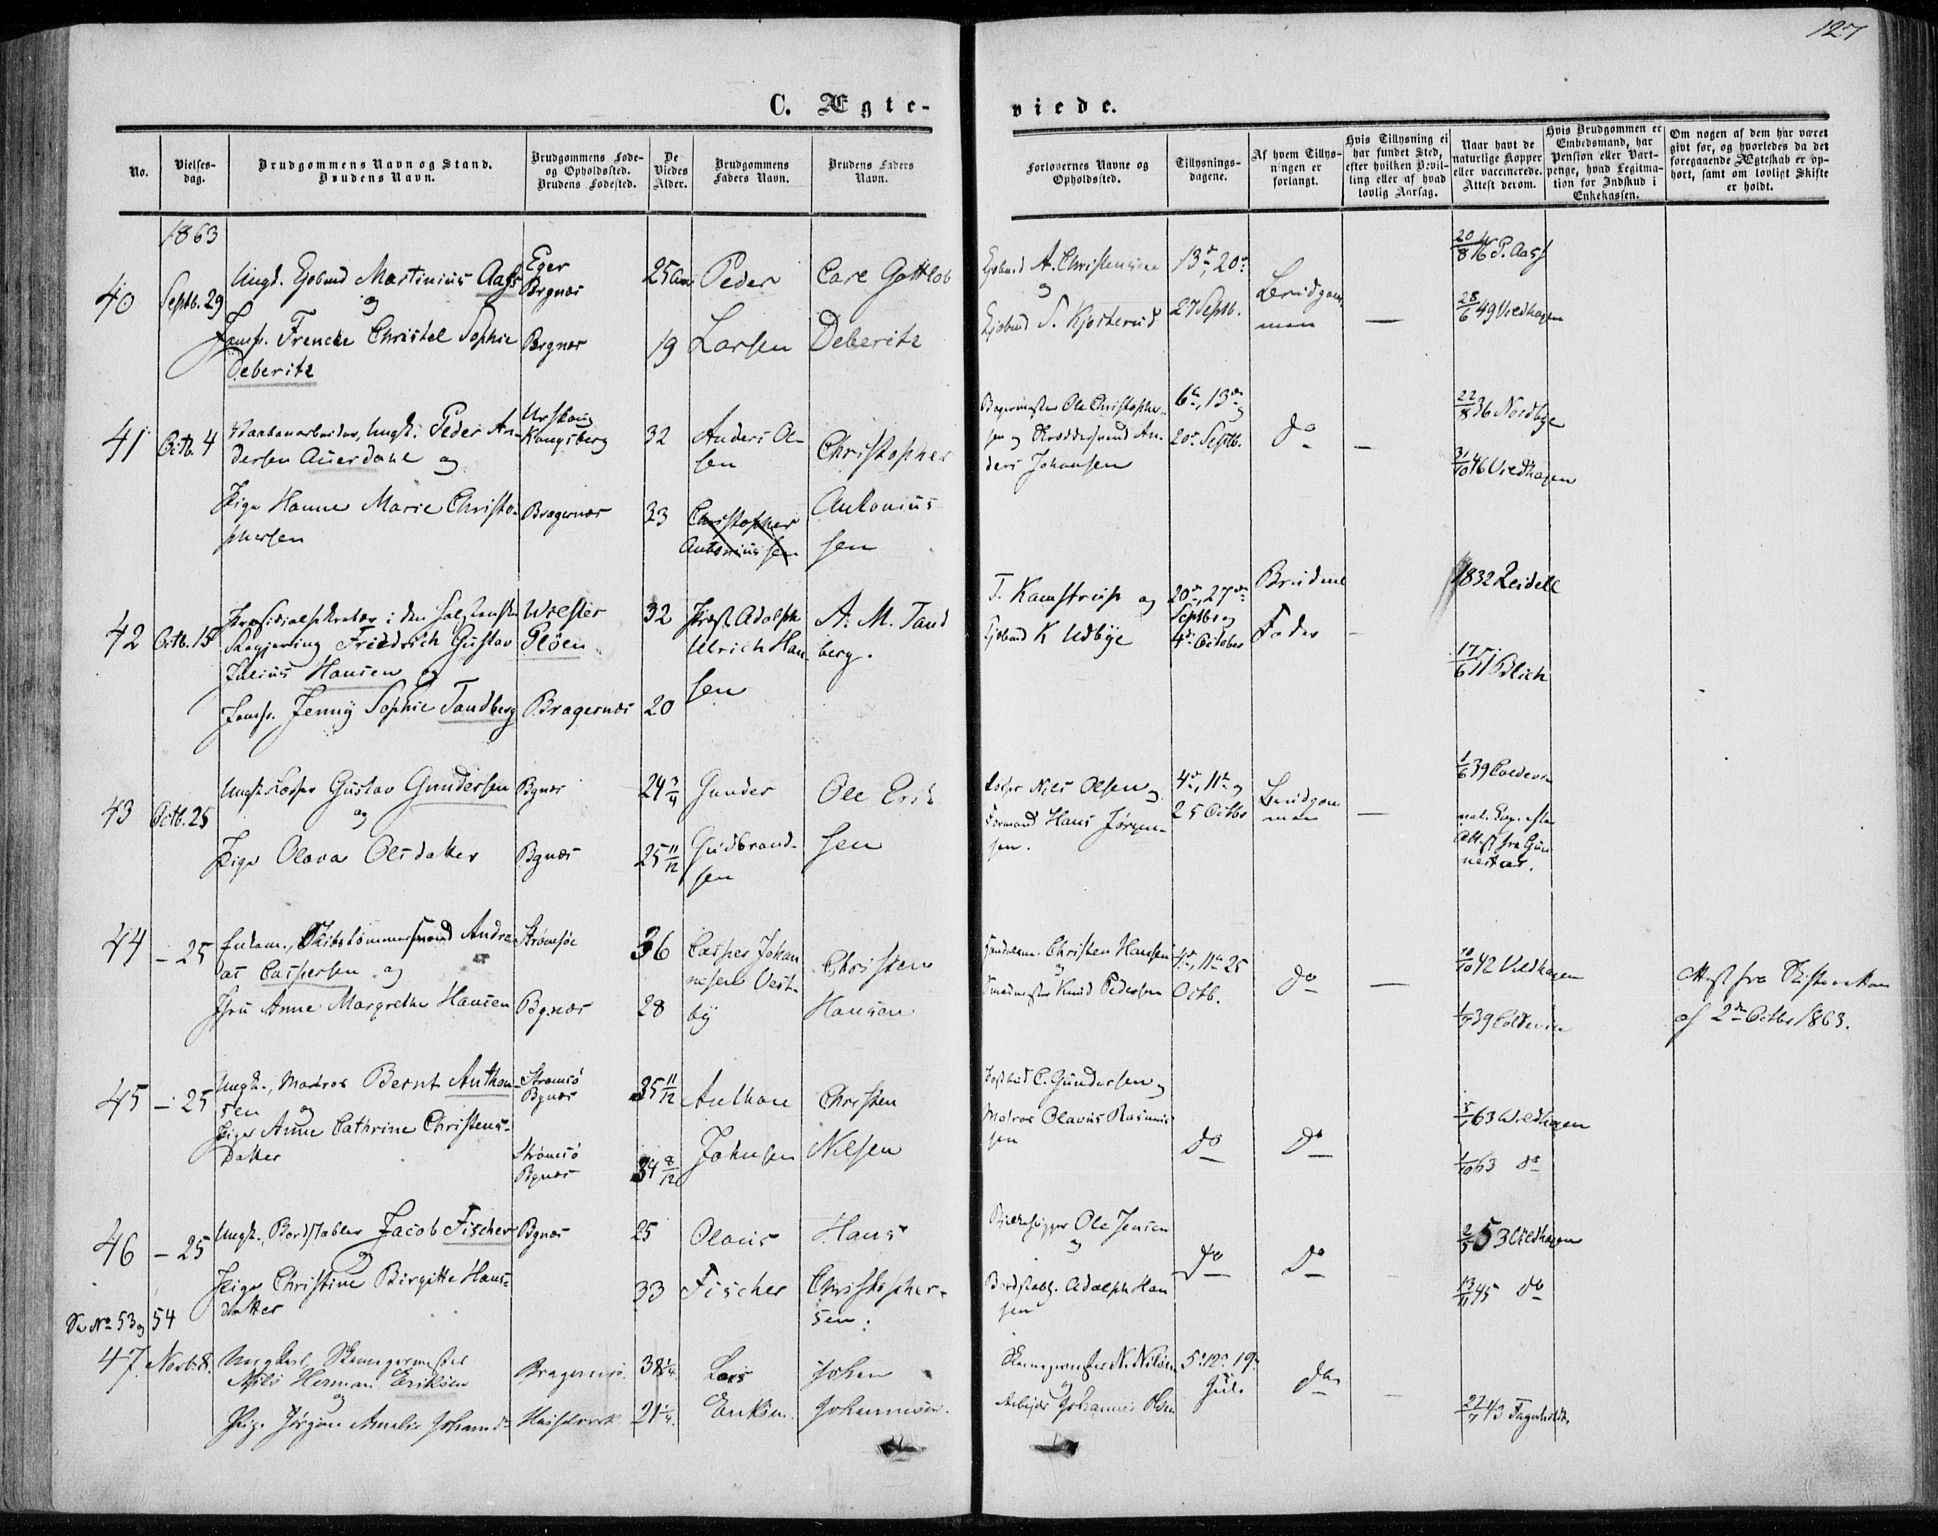 127
C. Ægte-
viede.
No.
Vielses-
dag.
Brudgommens Navn og Stand.
Brudens Navn.
Brudgommens Føde-
og Opholdssted.
Brudens Fødested.
De
Viedes
Alder.
Brudgommens
Faders Navn.
Brudens Faders
Navn.
Forlovernes Navne og
Opholdssted.
Tillysnings-
dagene.
Af hvem Tillys-
ningen er
forlangt.
Hvis Tillysning ei
har fundet Sted,
efter hvilken Bevil-
ling eller af hvad
lovlig Aarsag.
Naar havt de
naturlige Kopper
eller vaccinerede.
Attest derom.
Hvis Brudgommen er
Embedsmand, har
Pension eller Vart-
penge, hvad Legitima-
tion for Indskud i
Enkekassen.
Om nogen af dem har været
givt før, og hvorledes da det
foregaaende Ægteskab er op-
hørt, samt om lovligt Skifte
er holdt.
1863
40 Septb. 29
Ungk. Martinius Aass
og
Jomfr. Christel Sophie
Deberitz
Eger
Brgnæs
Brgnæs
25 Aar
19
Peder
Larsen
Carl Gottlob
Deberitz
A. Christensen
og
S. Kjosterud
13de, 20de
27 Septb.
Brudgom-
men
—
20/8 46 P. Aass
28/6 49 Vildhagen
41 Octb. 4
Ungk. Peder An-
dersen Auerdahl og
Pige Hanne Marie Christo-
phersen
Urskoug
Kongsberg
Bragernæs
32
33
Anders Ol-
sen
Christopher
Antoniussen
Christopher
Antonius
sen
Bagermester Ole Christopher-
sen og An-
ders Johansen
6te, 13de og
20de Septb.
do
—
22/8 36 Nordbye
31/10 46 Vildhagen
42 Octb. 15
i den holstenske
Regjering Friedrich Gustav
Julius Hansen og
Jomfr. Jenny Sophie Tandberg
Wiester
Pløen
Bragernæs
32
20
Præst Adolph
Ulrich Han-
sen
A. M. Tand
berg.
T. Kamstrup og
K Udbye
20de, 27de
Septb og
4de October
Brudens
Fader
—
1832 Reidell
43 Octb. 25
Ungk. Gustav Gundersen
og
Pige Olava Olsdatter
Bgnæs
Bgnæs
24 3/4
25 11/12
Gunder
Gudbrand-
sen
Ole Erik
sen
Niels Olsen og
Formand Hans Jørgen-
sen.
4de, 11te og
25 Octbr
Brudgom
men
—
1/6 39 Coldevin
44 — 25
Enkem., Skibstømmermand Andre-
as Caspersen og
Anne Margrethe Hansen
Strømsøe
Bgnæs
36
28
Casper Johan
nesen Vest-
by
Christen
Hansen
Christen Hansen
og
Knud Pedersen
4de, 11te 25
Octb.
do
—
10/10 42 Vildhagen
1/7 39 Coldevin
Attest fra Skifteretten
af 2den Octbr 1863.
45 — 25
Ungk., Matros Bernt Anthon-
sen og
Pige Anne Cathrine Christens-
datter
Strømsø
Bgnæs
Strømsø
Bgnæs
35 11/12
34 8/12
Anthon
Johnsen
Christen
Nilsen
C. Gundersen og
Matros Olavus Rasmus
sen
do
do
63 Vildhagen
1/10 63 do
46 — 25
Ungk., Bordstabler Jacob Fischer
og
Pige Christine Birgitte Hans-
datter
Bgnæs
25
33
Olaus
Fischer
Hans
Christopher-
sen.
Ole Jensen
og
Bordstabl. Adolph Han
sen
do
do
2/5 53 Vildhagen
13/11 45 do
Se No 53 og 54
47 Novb. 8.
Ungkarl
Nils Herman Eriksen
og
Pige Jørgine Amalie Johansdr
Bragernæs
38 1/4
21 1/4.
Lars
Eriksen
Johan
Johannesen.
N. Nilsen
og
Arbejder Johannes Olsen
5te 12te 19de
Juli
do
—
27/7 43 Fagerholdt